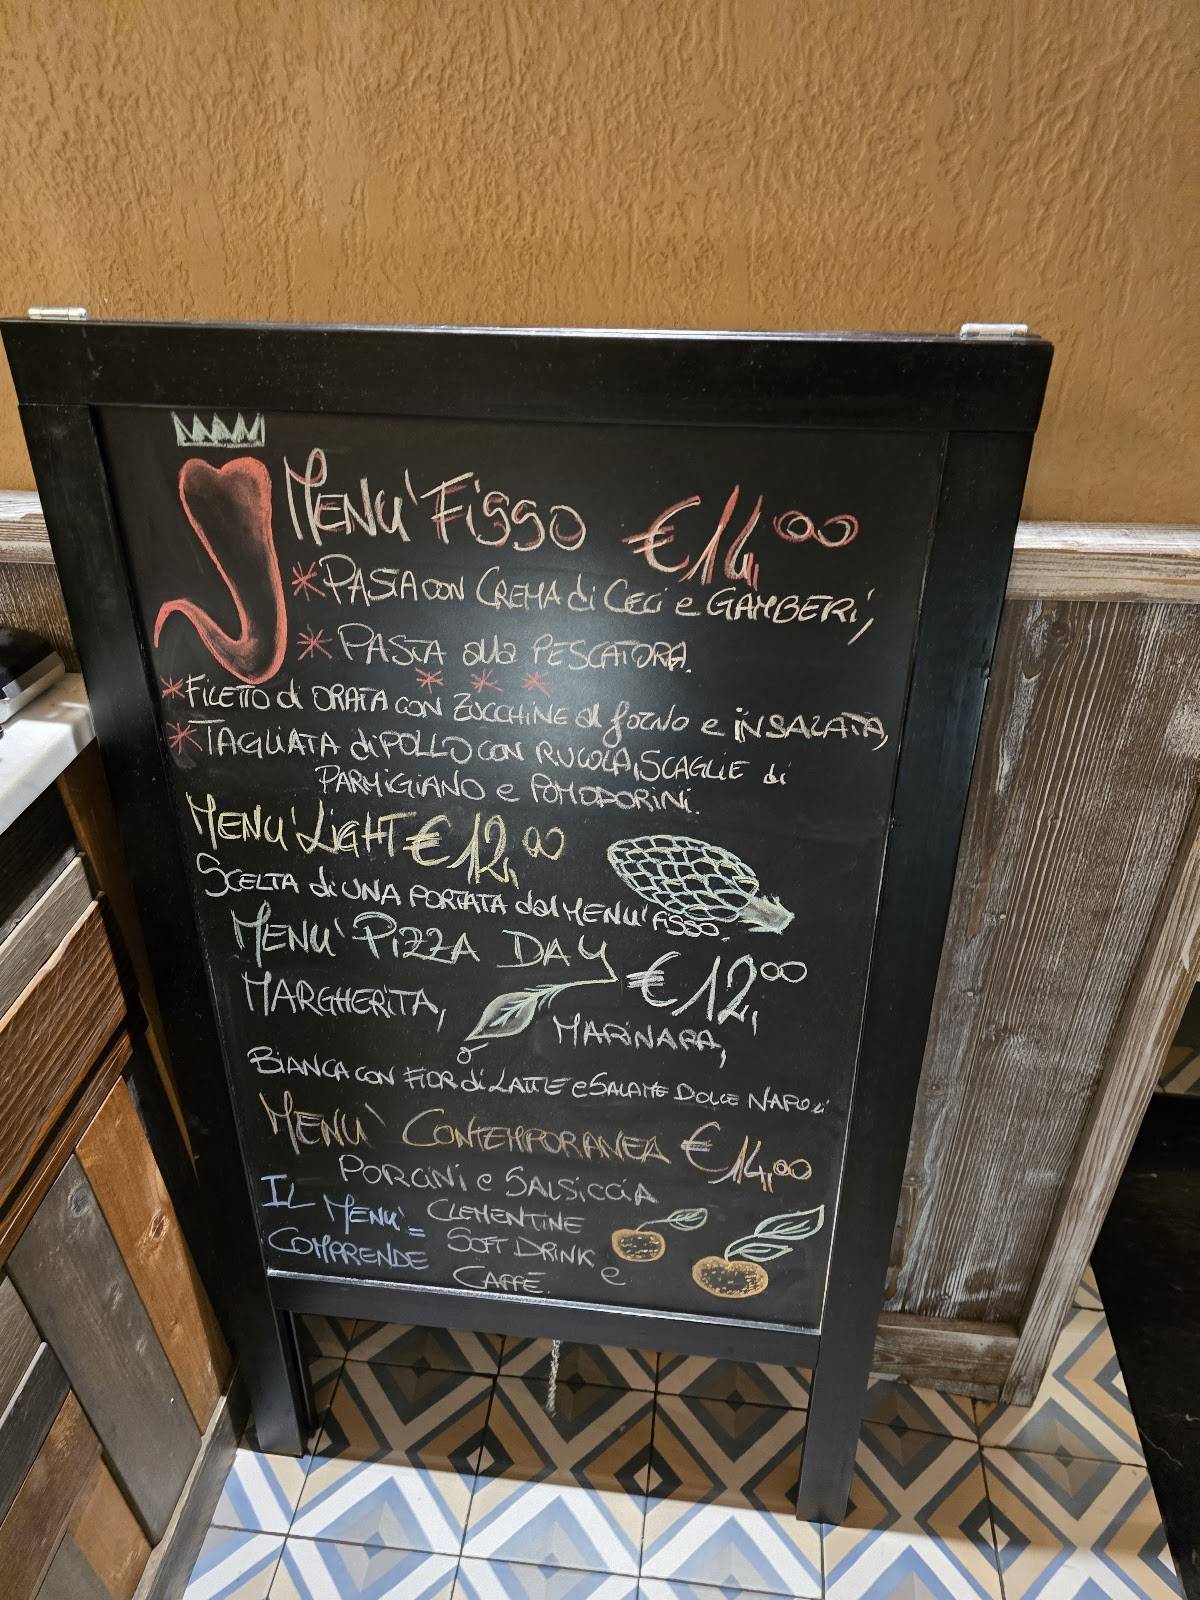 MENU' FISSO €14,00
* PASTA CON CREMA di CECI e GAMBERI,
* PASTA alla PESCATORA.
* * *
* FILETTO di ORATA CON ZUCCHINE al forno e INSALATA,
* TAGLIATA di POLLO CON RUCOLA, SCAGLIE di
PARMIGIANO e POMODORINI.
MENU' LIGHT €12,00
SCELTA di UNA PORTATA dal MENU' FISSO.
MENU' PIZZA DAY €12,00
MARGHERITA, MARINARA,
BIANCA CON FIOR di LATTE e SALAME DOLCE NAPOLi
MENU' CONTEMPORANEA €14,00
PORCINI e SALSICCIA
IL MENU' = CLEMENTINE
COMPRENDE SOFT DRINK e
CAFFÉ.